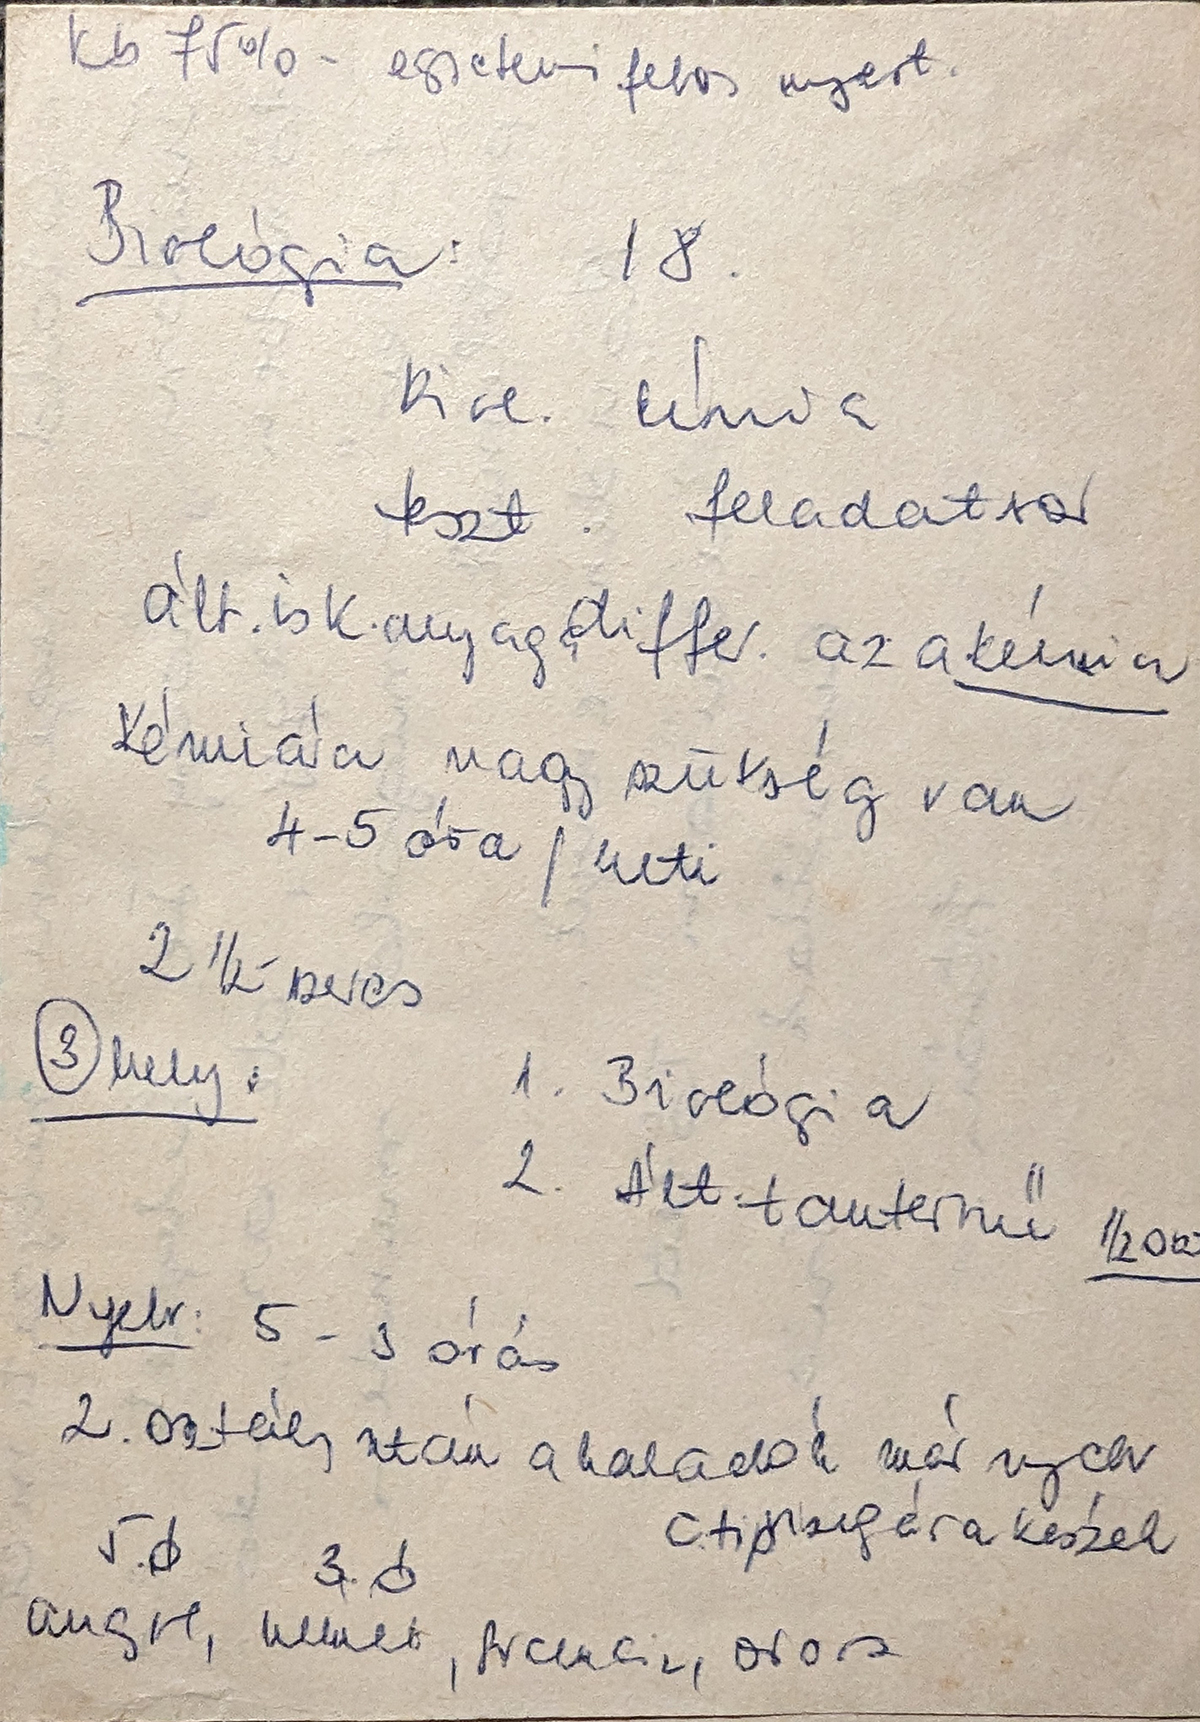 kb 75% - egyetemi felvé nyert.
Biológia: 18.
Biol. kémia
teszt. feladatsor
ált. isk. anyag, differ. az a kémia
Kémiára nagy szükség van
4-5 óra / heti
2 1/2-szeres
3 hely:
1. Biológia
2. Ált. tantervű 1/2 osz
Nyelv: 5 - 3 órás
2. osztály után a haladók már nyelv
C. tip. vizsgára készül
5. ó 3. ó
angol, német, francia, orosz